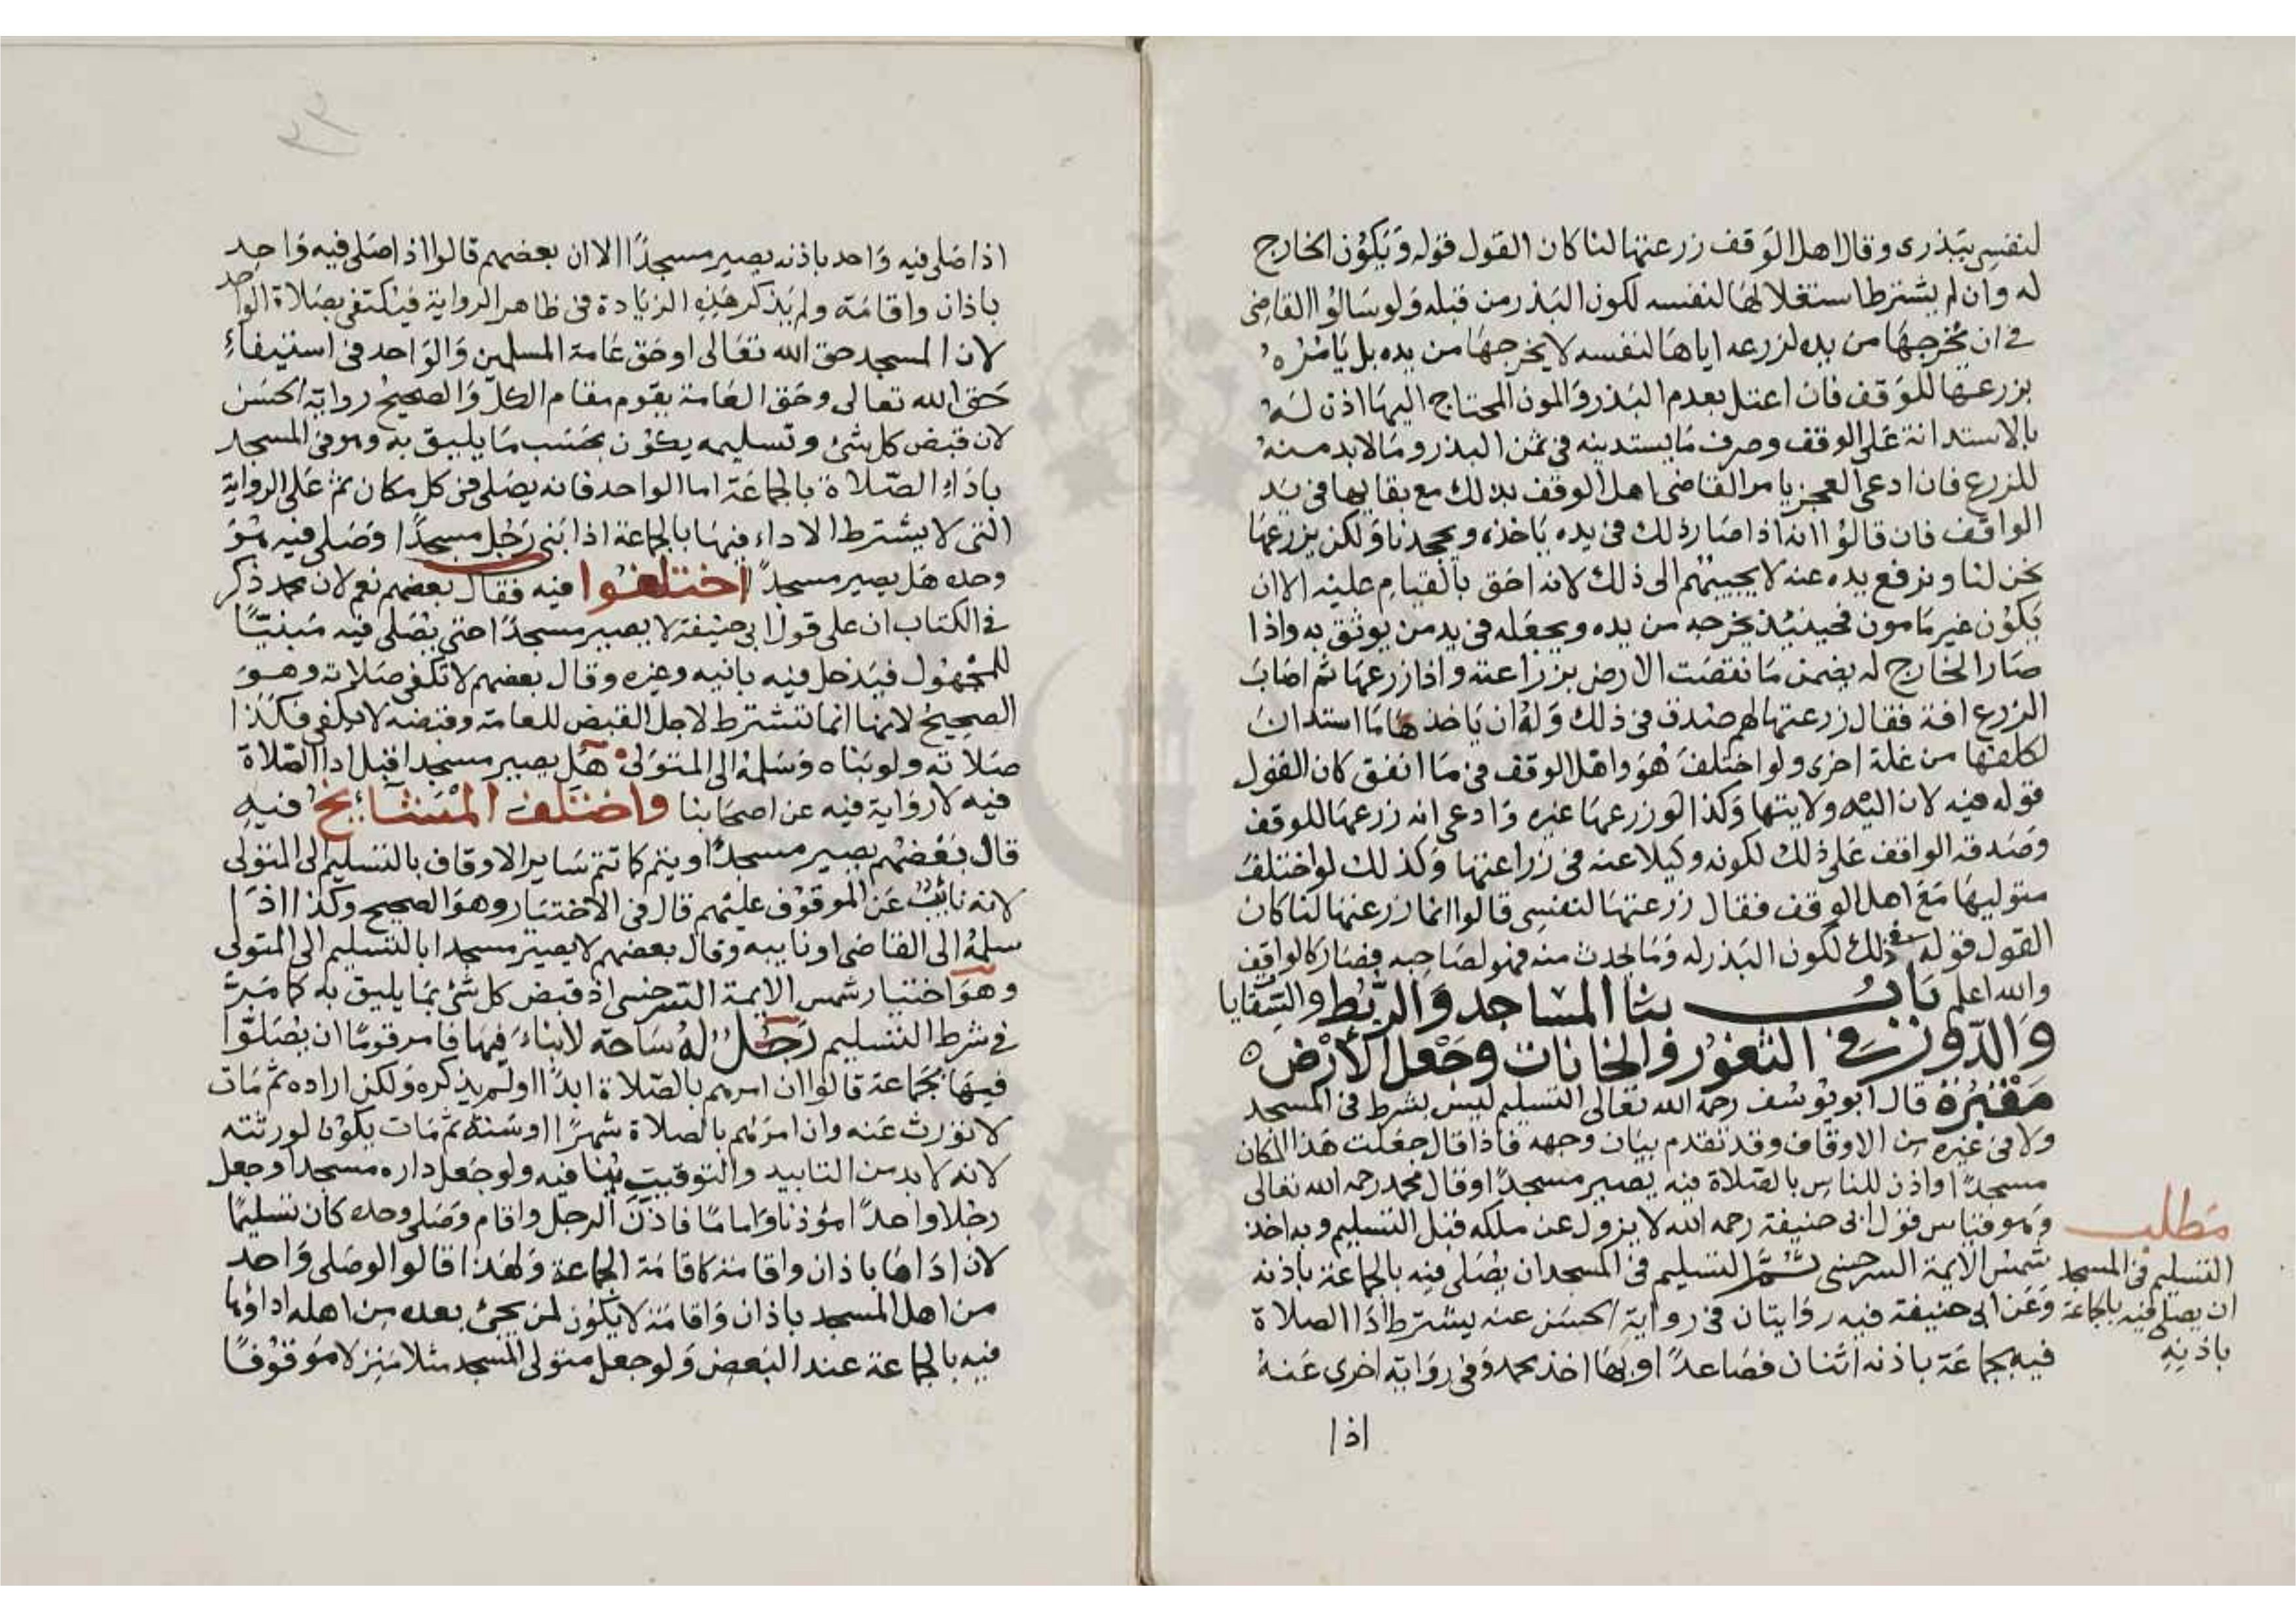 لنفسي ببذرى وقال اهل الوقف زرعتها لنا كان القول قوله وَيَكوُن الخارج
له وان لم يشترط استغلالها لنفسه لكون البذر من قبله وَلو سَالوُا القاضى
في ان يخرجهَا من يده لزرعه اياهَا لنفسه لا يخرجهَا من يده بل يَامُرُهُ
بزرعها للوَقف فان اعتل بعدم البَذر وَالمون المحتاج اليهَا اذن لهُ
بالاستدانة عَلى الوقف وصرف مَا يستدينه في ثمن البذر ومَا لابد منهُ
للزرع فان ادعى العجز يامر القاضى اهل الوقف بذلك مع بقايها فى يَد
الواقف فان قالوُا انه اذا صَار ذلك فى يده يَاخذه ويجحدنا وَلكن يزرعهَا
نحن لنا ونرفع يده عنه لا يجيبهُم الى ذلك لانه احَق بالقيام عليه الا ان
يَكوُن غير مَامون فحينئذ يخرجه من يده ويجعَله فى يد من يوثق به واذا
صَار الخارج له يضمن مَا نقصَت الارض بزراعته واذا زرعهَا ثم اصَابَ
الزرع افة فقال زرعتهَا لهم صدق فى ذلك وَلهُ ان يَاخذ هَا مَا استدانَ
لكلفها من غلة اخرى ولو اختلفَ هُوَ واهْل الوقف فى مَا انفق كان القول
قوله فيه لان اليه ولايتها وَكذا لو زرعهَا غيره وَادعى انه زرعهَا للوقف
وصَدقه الواقف عَلى ذلك لكونه وكيلا عنه فى زراعتها وَكذلك لو اختلفَ
متوليهَا مَعَ اهل الوقف فقال زرعتهَا لنفسى قالوا انما زرعتهَا لنا كان
القول قوله فى ذلك لكون البَذر له وَمَا يحدث منه فهو لصَاحبه فصَار كالواقف
والله اعلم بَابُ بنا المساجد وَالرُّبُط والسّقايا
وَالدّور فى الثغوُر وَالخانات وجَعل الأرْض
مَقبُرَة قال ابو يوُسُف رحمَه الله تعَالى التسليم ليسَ بشرط فى المسجد
ولا فى غيره من الاوقاف وقد تقدم بيَان وجهه فاذا قال جعَلت هَذا المكان
مسجدًا واذن للناس بالصَّلاة فيه يصير مسجدًا وقال محمد رحمه الله تعالى
وَهو قياس قول ابى حنيفة رحمه الله لا يزول عن ملكه قبل التسليم وبه اخذ
شمسُ الايمة السرخسى ثمَّ التسليم فى المسجد ان يصُلى فيه بالجماعة باذنه
وَعَن ابى حنيفة فيه روَايتان فى رواية الحسَن عنه يشترط ادَا الصلاة
فيه بجماعَة باذنه اثنان فصَاعدًا وبهَا اخذ محمد وَفى روَاية اخرى عَنهُ
اذا
مَطلب
التسليم فى المسجد
ان يصلى فيه بالجماعة
باذنِهِ
٣٣
اذا صَلى فيه وَاحد باذنه يصير مسجدًا الا ان بعضهم قالوا اذا صَلى فيه وَاحد
باذان واقامَة ولم يَذكر هَذِهِ الزيَادة فى ظاهر الرواية فيَكتفى بصَلاة الواحد
لان المسجد حق الله تعَالى اوحَق عَامة المسلمين وَالوَاحد فى استيفاءِ
حَق الله تعالى وحَق العَامة يقوم مقام الكل وَالصحيحُ رواية الحسَن
لان قبض كل شئ وتسليمه يكوُن بحَسَب مَا يليق به وهو فى المسجد
باداءِ الصّلاة بالجماعَة اما الواحد فانه يصَلى فى كل مكان ثم عَلى الرواية
التى لا يشترط الاداء فيهَا بالجماعة اذا بَنى رَجُل مسجدًا وصَلى فيه هُوَ
وحده هَل يصير مسجدًا اختلفوا فيه فقال بعضهم نعم لان محمد ذكر
فى الكتاب ان على قول ابى حنيفة لا يصير مسجدًا حتى يصَُلى فيه مَبنيًّا
للمجهُول فيَدخل فيه بانيه وغيره وقال بعضهم لا تكفى صَلاته وهوَ
الصحيحُ لانهَا انما تشترط لاجل القبض للعامة وقبضه لا يكفى فكذا
صَلاته ولو بَناه وَسَلمهُ الى المتوَلى هَل يصير مسجدا قبل ادا الصّلاة
فيه لا روَاية فيه عن اصحَابنا وَاختلف المَشائخُ فيهِ
قال بَعْضهُم يصير مسجدًا ويتم كما تتم سَاير الاوقاف بالتسليم الى المتولى
لانه نايبُ عَن الموقوُف عليهم قال فى الاختيَار وهوَ الصحيح وَكذا اذا
سلمهُ الى القاضى او نايبه وقال بعضهم لا يصير مسجدا بالتسليم الى المتولى
وهوَ اختيار شمس الايمة السرخسى اذ قبض كل شئ بمَا يليق به كما مَرَّ
فى شرط التسليم رَجُل لهُ سَاحة لا بناءَ فيهَا فامر قومًا ان يصَُلوّا
فيهَا بجَماعة قالوا ان امرهم بالصّلاة ابدًا اولم يذكره وَلكن اراده ثم مَات
لا توُرث عَنه وان امرَهُم بالصلاة شهرًا اوسَنة ثم مَات يكوُن لورثته
لانه لا بد من التابيد والتوقيت يُنافيه ولو جَعل داره مسجدا وجعل
رجلا واحدًا مؤذنا وَاما مًا فاذنَ الرجل واقام وَصَلى وحده كان تسليمًا
لان ادَاهَا باذان واقامة كاقامَة الجماعة وَلهَذا قالوا لو صَلى وَاحد
من اهل المسجد باذان وَاقامَة لا يكوُن لمن يجئ بعده من اهله اداؤها
فيه بالجماعة عند البَعض وَلو جعل متولى المسجد مثلا منزلا مَوقوُفًا